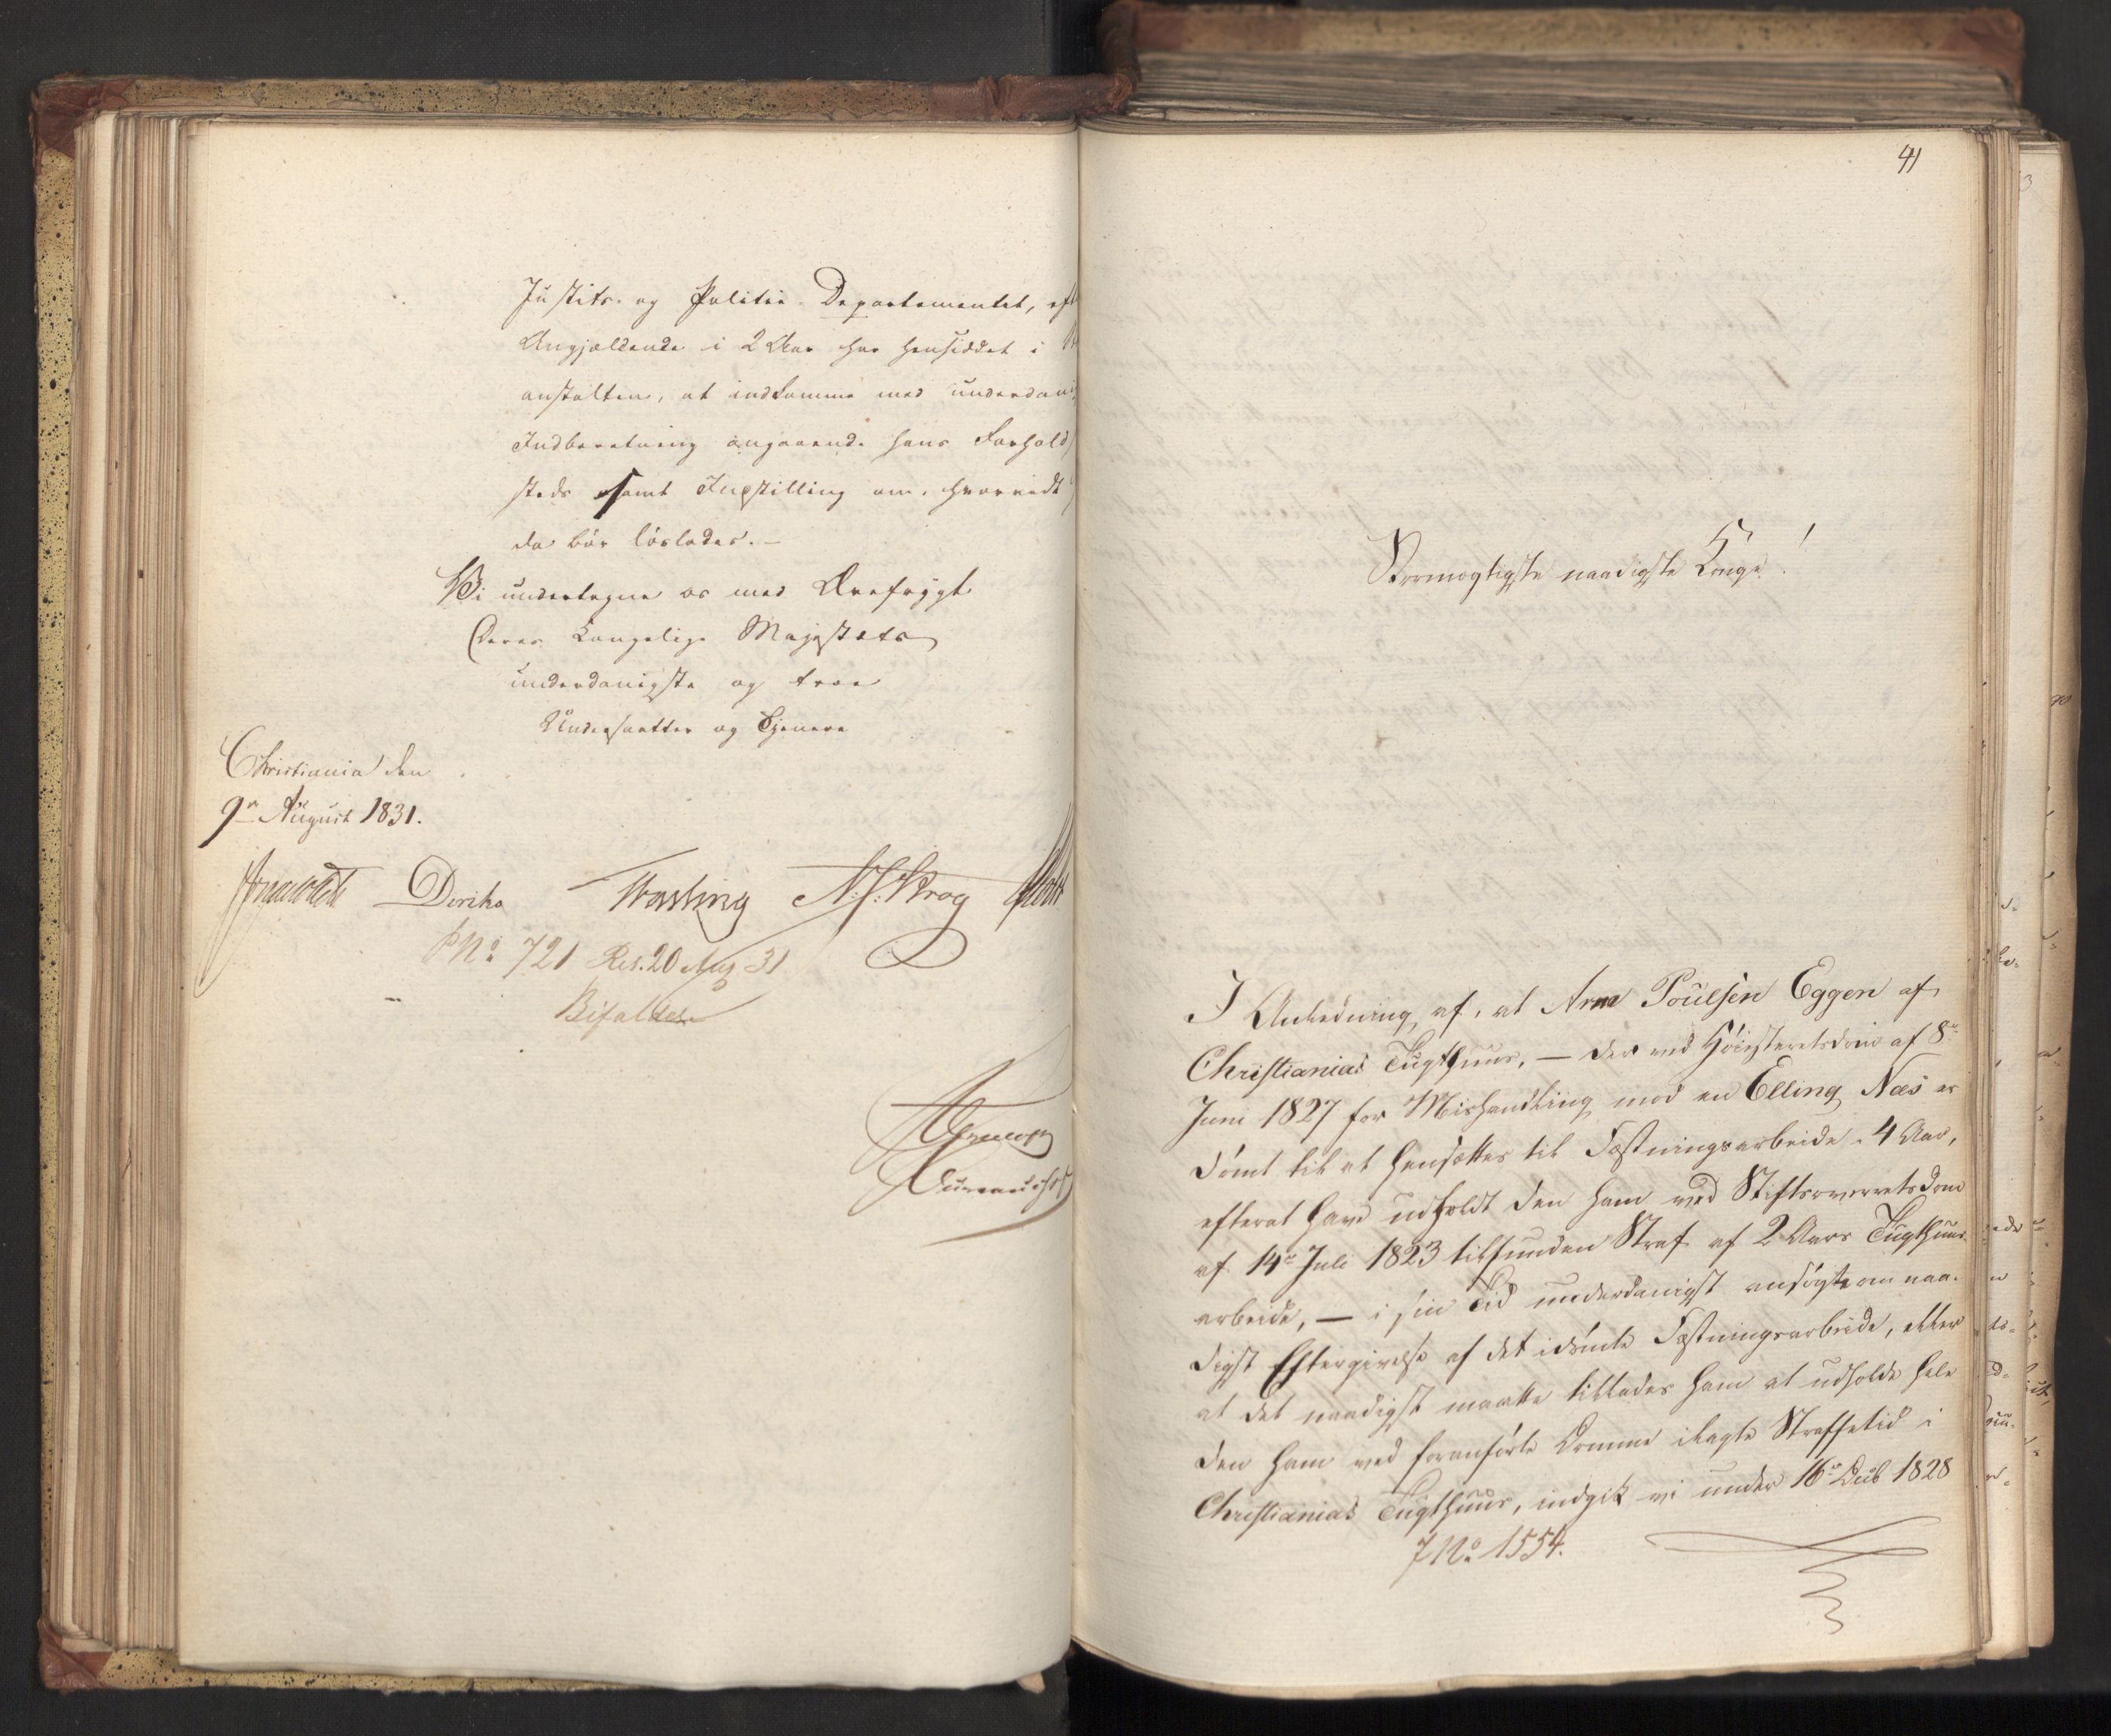 Justits- og Politie-Departementet, eft
Angjældende i 2 Aar har hensiddet i
anstalten, at indkomme med underdani
Indberetning angaaende hans Forhold
steds samt Indstilling om, hvorvidt
da bør løslades.-
Vi undertegne os med Ærefrygt
Deres Kongelige Majestæts
underdanigste og troe
Undersaatter og Tjenere
Christiania den
9de August 1831.
Diriks Vosling N. J. Krog
No 721 Res. 20 Aug 31
Bifaldes
41
Stormægtigste naadigste Konge!
I Anledning af, at Arne Poulsen Eggen af
Christianias Tugthuus, — der ved Høiesteretsdom af 8de
Juni 1827 for Mishandling mod en Elling Næs er
dømt til at hensættes til Fæstningsarbeide i 4 Aar,
efterat have udholdt den ham ved Stiftsoverretsdom
af 14de Juli 1823 tilfunden Straf af 2 Aars Tugthuus-
arbeide, — i sin Tid underdanigst ansøgte om naa-
digst Eftergivelse af det idømte Fæstningsarbeide, eller
at det naadigst maatte tillades ham at udholde hele
den ham ved foranførte Domme ilagte Straffetid i
Christianias Tugthuus, indgik vi under 16de 1828
J No 1554.